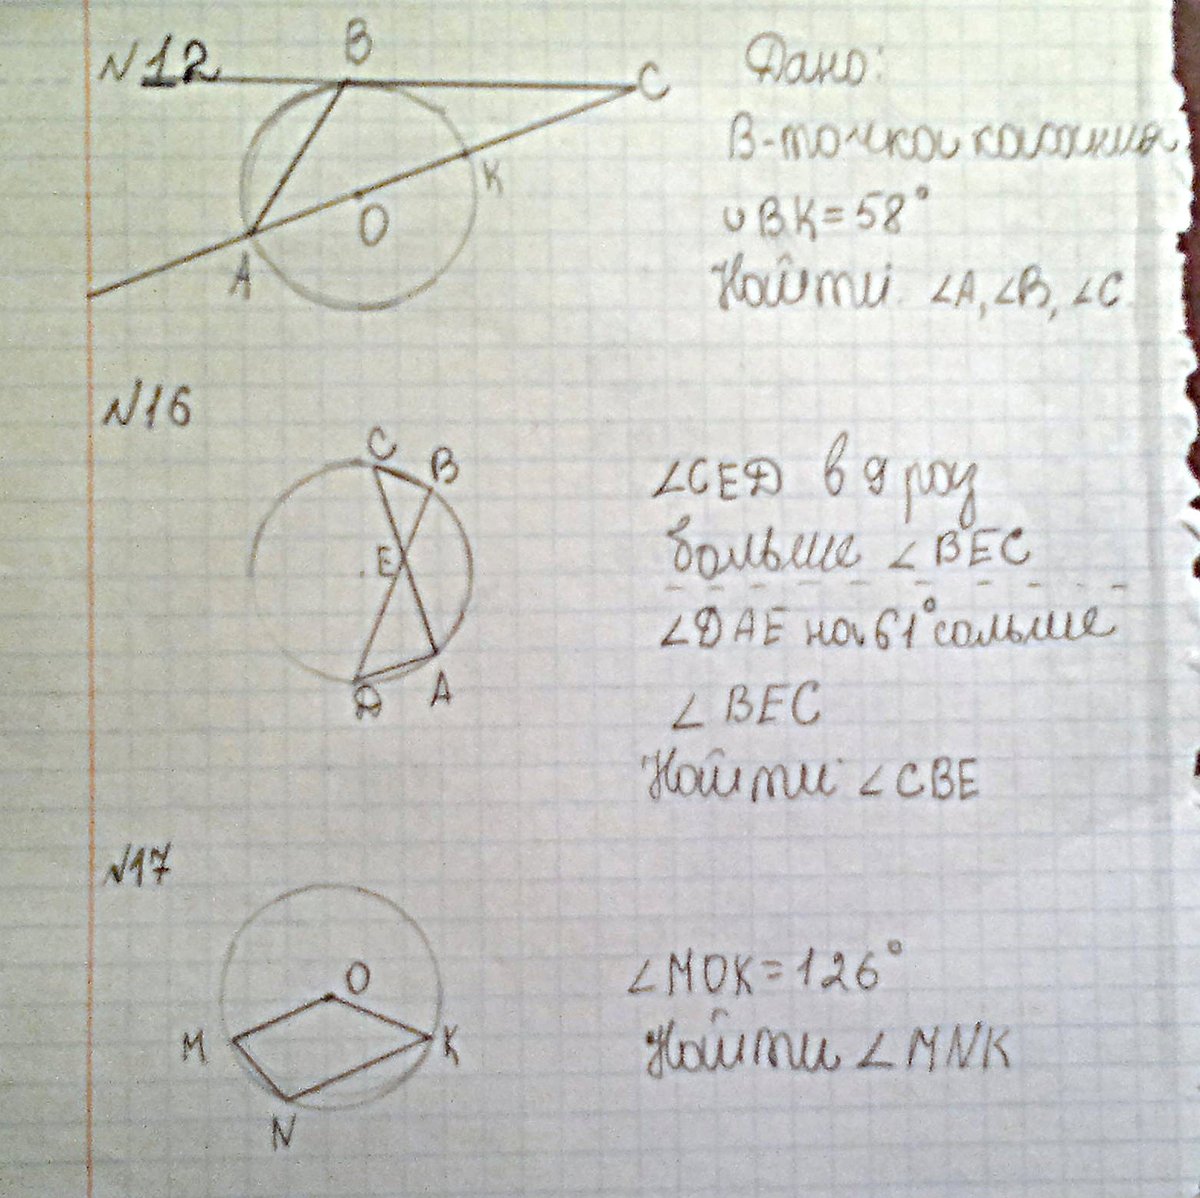 N12
B
C
K
O
A
Дано:
B-точка касания
∪BK=58°
Найти ∠A, ∠B, ∠C
N16
C
B
E
D
A
∠CED в 9 раз
больше ∠BEC
∠DAE на 61° больше
∠BEC
Найти ∠CBE
N17
O
M
K
N
∠MOK=126°
Найти ∠MNK